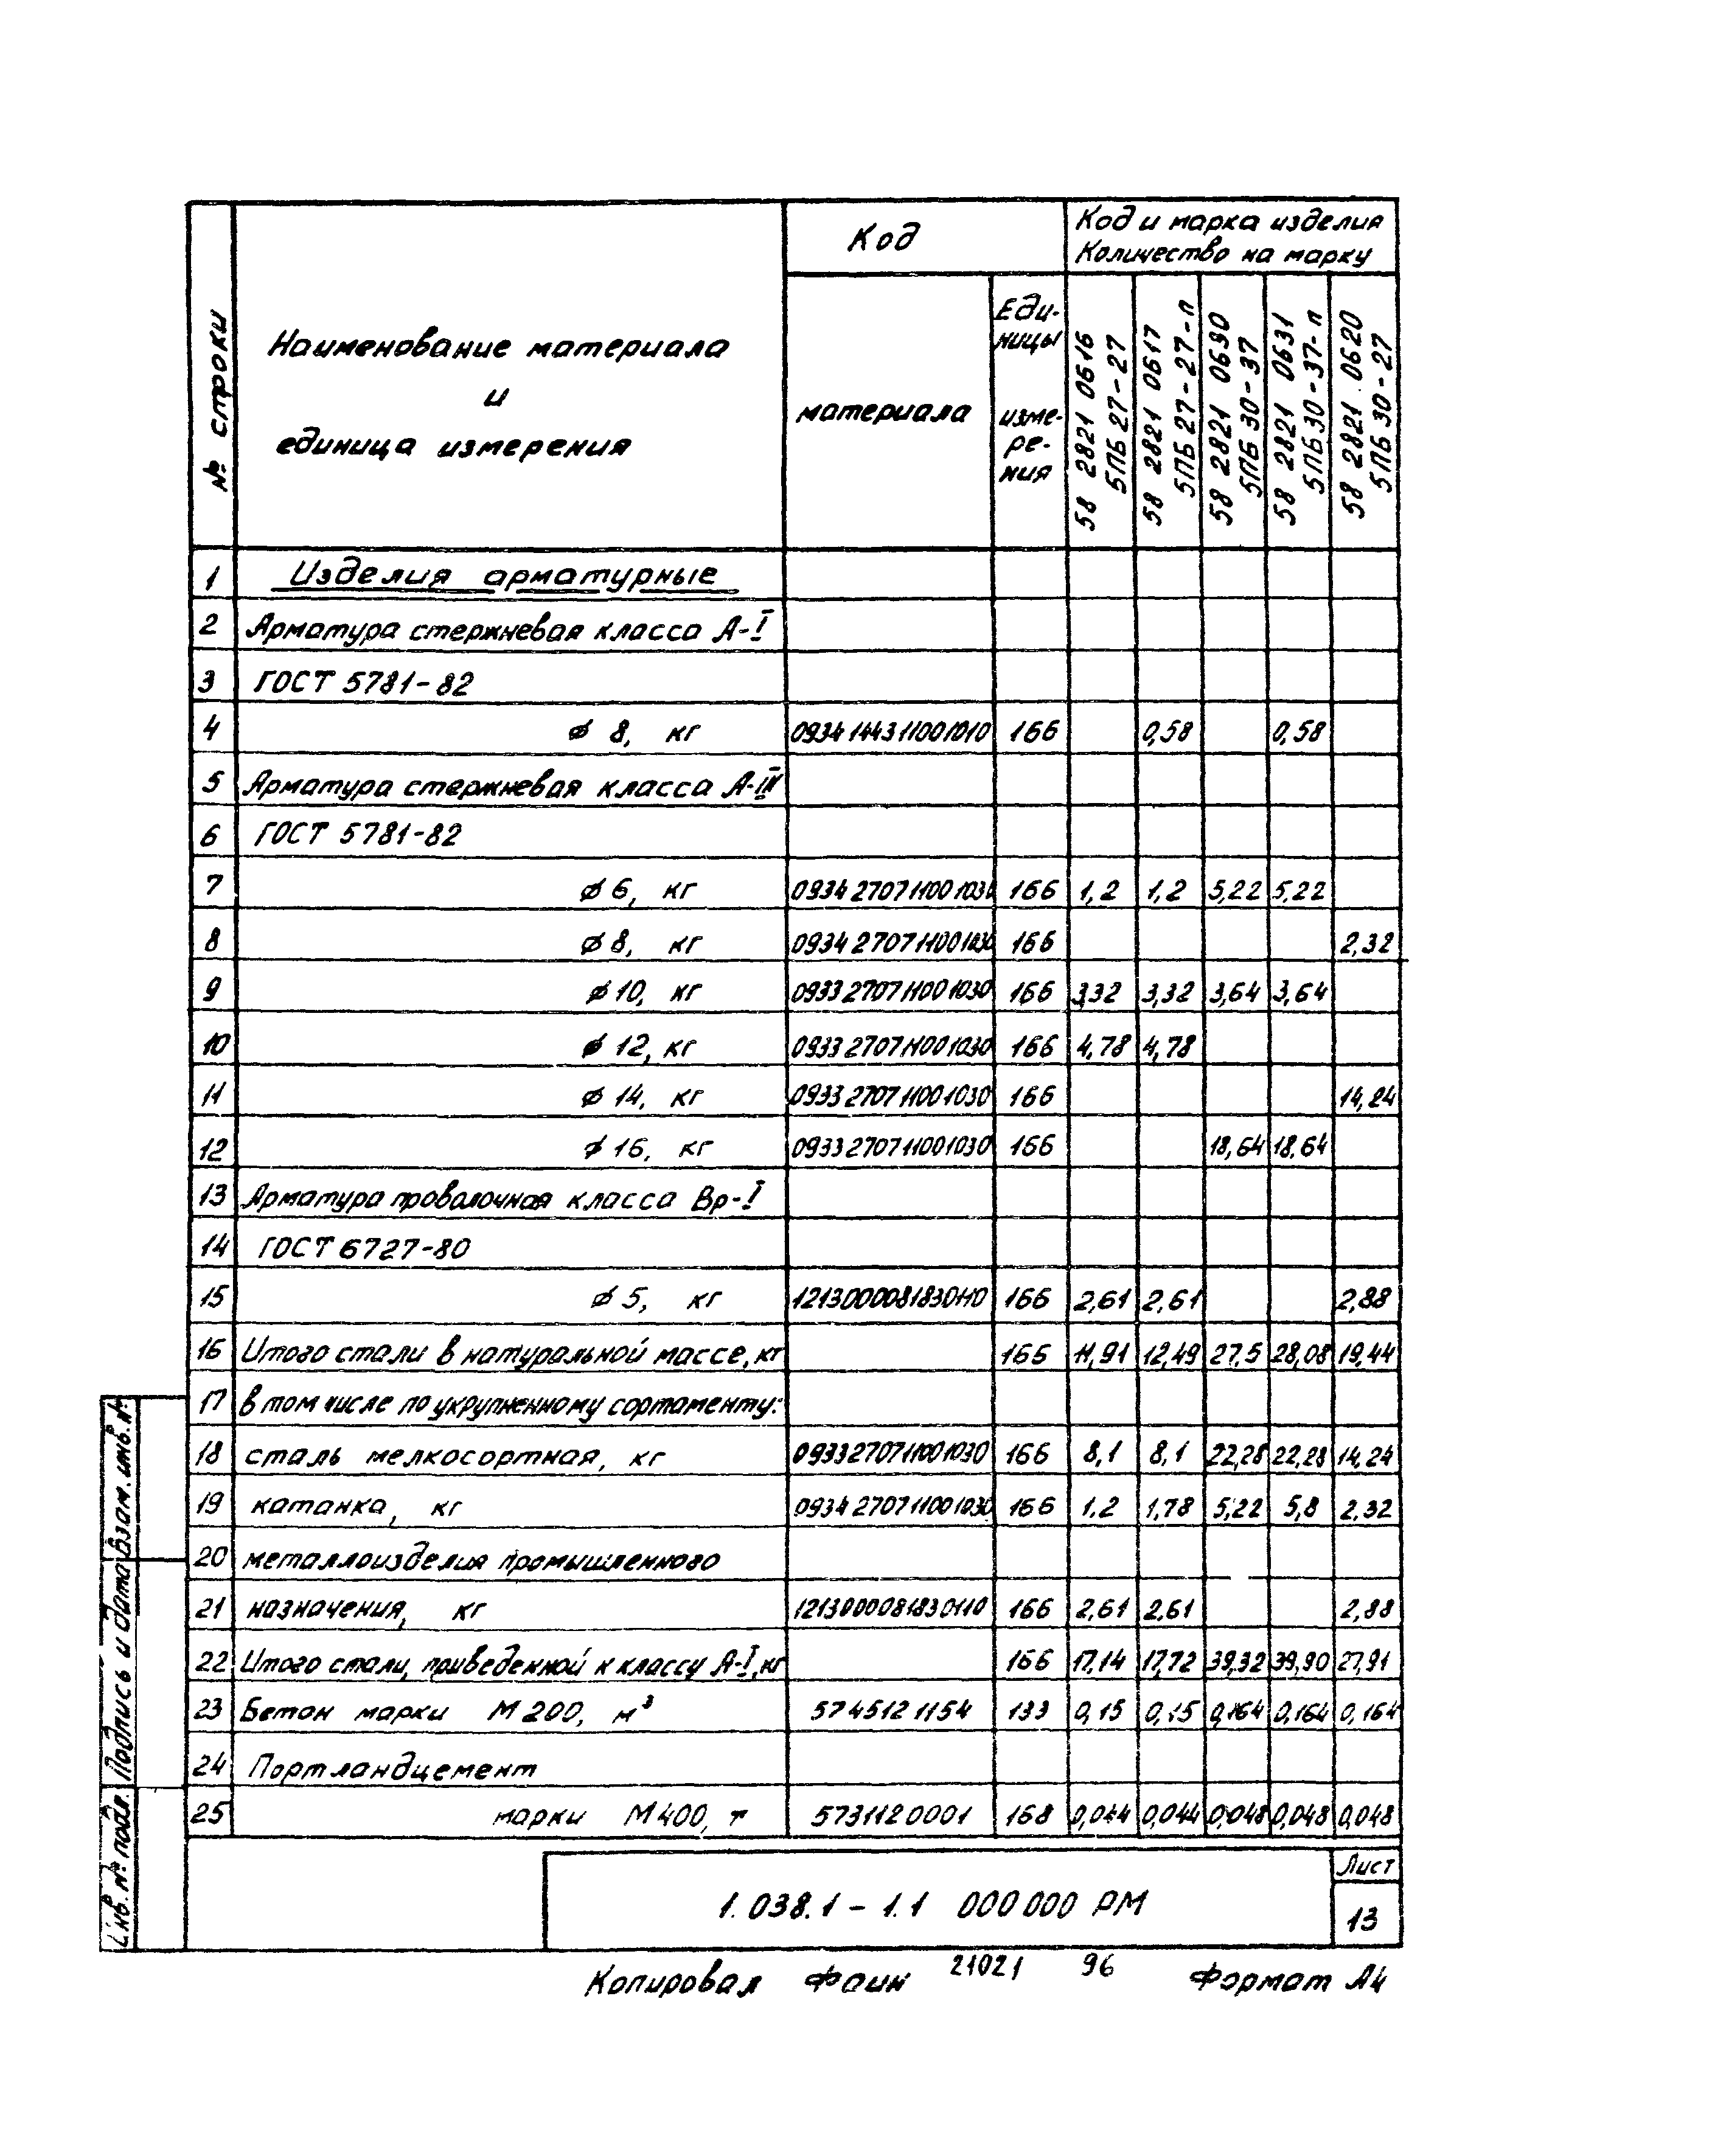 № строки
Наименование материала
и
единица измерения
Код
Код и марка изделия
Количество на марку
материала
Еди-
ницы
изме-
ре-
ния
58 2821 0616
5ПБ 27-27
58 2821 0617
5ПБ 27-27-п
58 2821 0630
5ПБ 30-37
58 2821 0631
5ПБ 30-37-п
58 2821 0620
5ПБ 30-27
1 Изделия арматурные
2 Арматура стержневая класса А-I
3 ГОСТ 5781-82
4 ⌀ 8, кг 0934 1443 11001010 166 0,58 0,58
5 Арматура стержневая класса А-III
6 ГОСТ 5781-82
7 ⌀ 6, кг 0934 270711001030 166 1,2 1,2 5,22 5,22
8 ⌀ 8, кг 0934 270711001030 166 2,32
9 ⌀ 10, кг 0933 270711001030 166 3,32 3,32 3,64 3,64
10 ⌀ 12, кг 0933 270711001030 166 4,78 4,78
11 ⌀ 14, кг 0933 270711001030 166 14,24
12 ⌀ 16, кг 0933 270711001030 166 18,64 18.64
13 Арматура проволочная класса Вр-I
14 ГОСТ 6727-80
15 ⌀ 5, кг 1213000081830110 166 2,61 2,61 2,88
16 Итого стали в натуральной массе, кг 166 11,91 12,49 27,5 28,08 19,44
17 в том числе по укрупненному сортаменту:
18 сталь мелкосортная, кг 0933270711001030 166 8,1 8,1 22,28 22,28 14,24
19 катанка, кг 0934 270711001030 166 1.2 1,78 5,22 5,8 2,32
20 металлоизделия промышленного
21 назначения, кг 1213000081830110 166 2,61 2,61 2,88
22 Итого стали, приведенной к классу А-I, кг 166 17,14 17,72 39,32 39,90 27,91
23 Бетон марки М 200, м³ 574512 1154 133 0,15 0,15 0,164 0,164 0,164
24 Портландцемент
25 марки М 400, т 573112 0001 168 0,044 0,044 0,048 0,048 0,048
Взам. инв. №
Подпись и дата
Инв. № подл.
1. 038.1 - 1.1 000 000 РМ
Лист
13
Копировал Фаин 21021 96 Формат А4